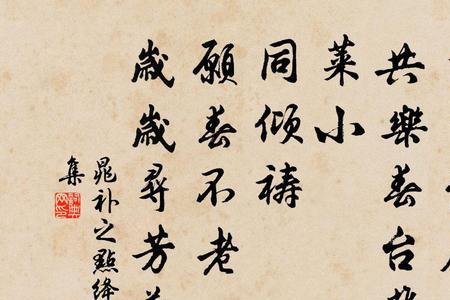 共樂春台
萊小
同傾禱
願春不老
歲歲尋芳
晁补之點絳
集